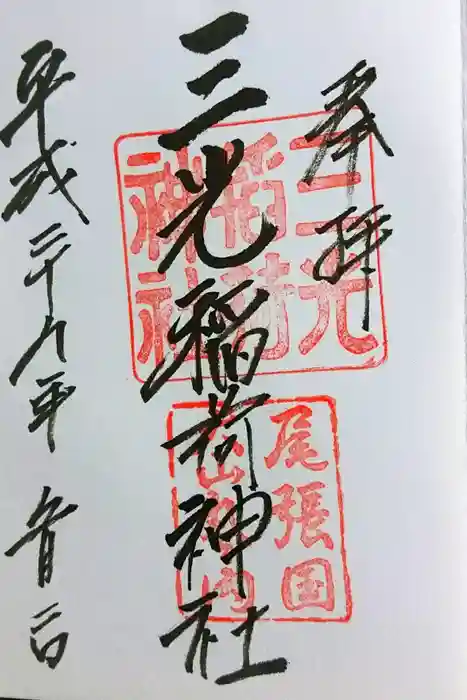 奉拝
三光稲荷神社
平成二十九年 月 日
三光
稲荷
神社
尾張国
犬山城内